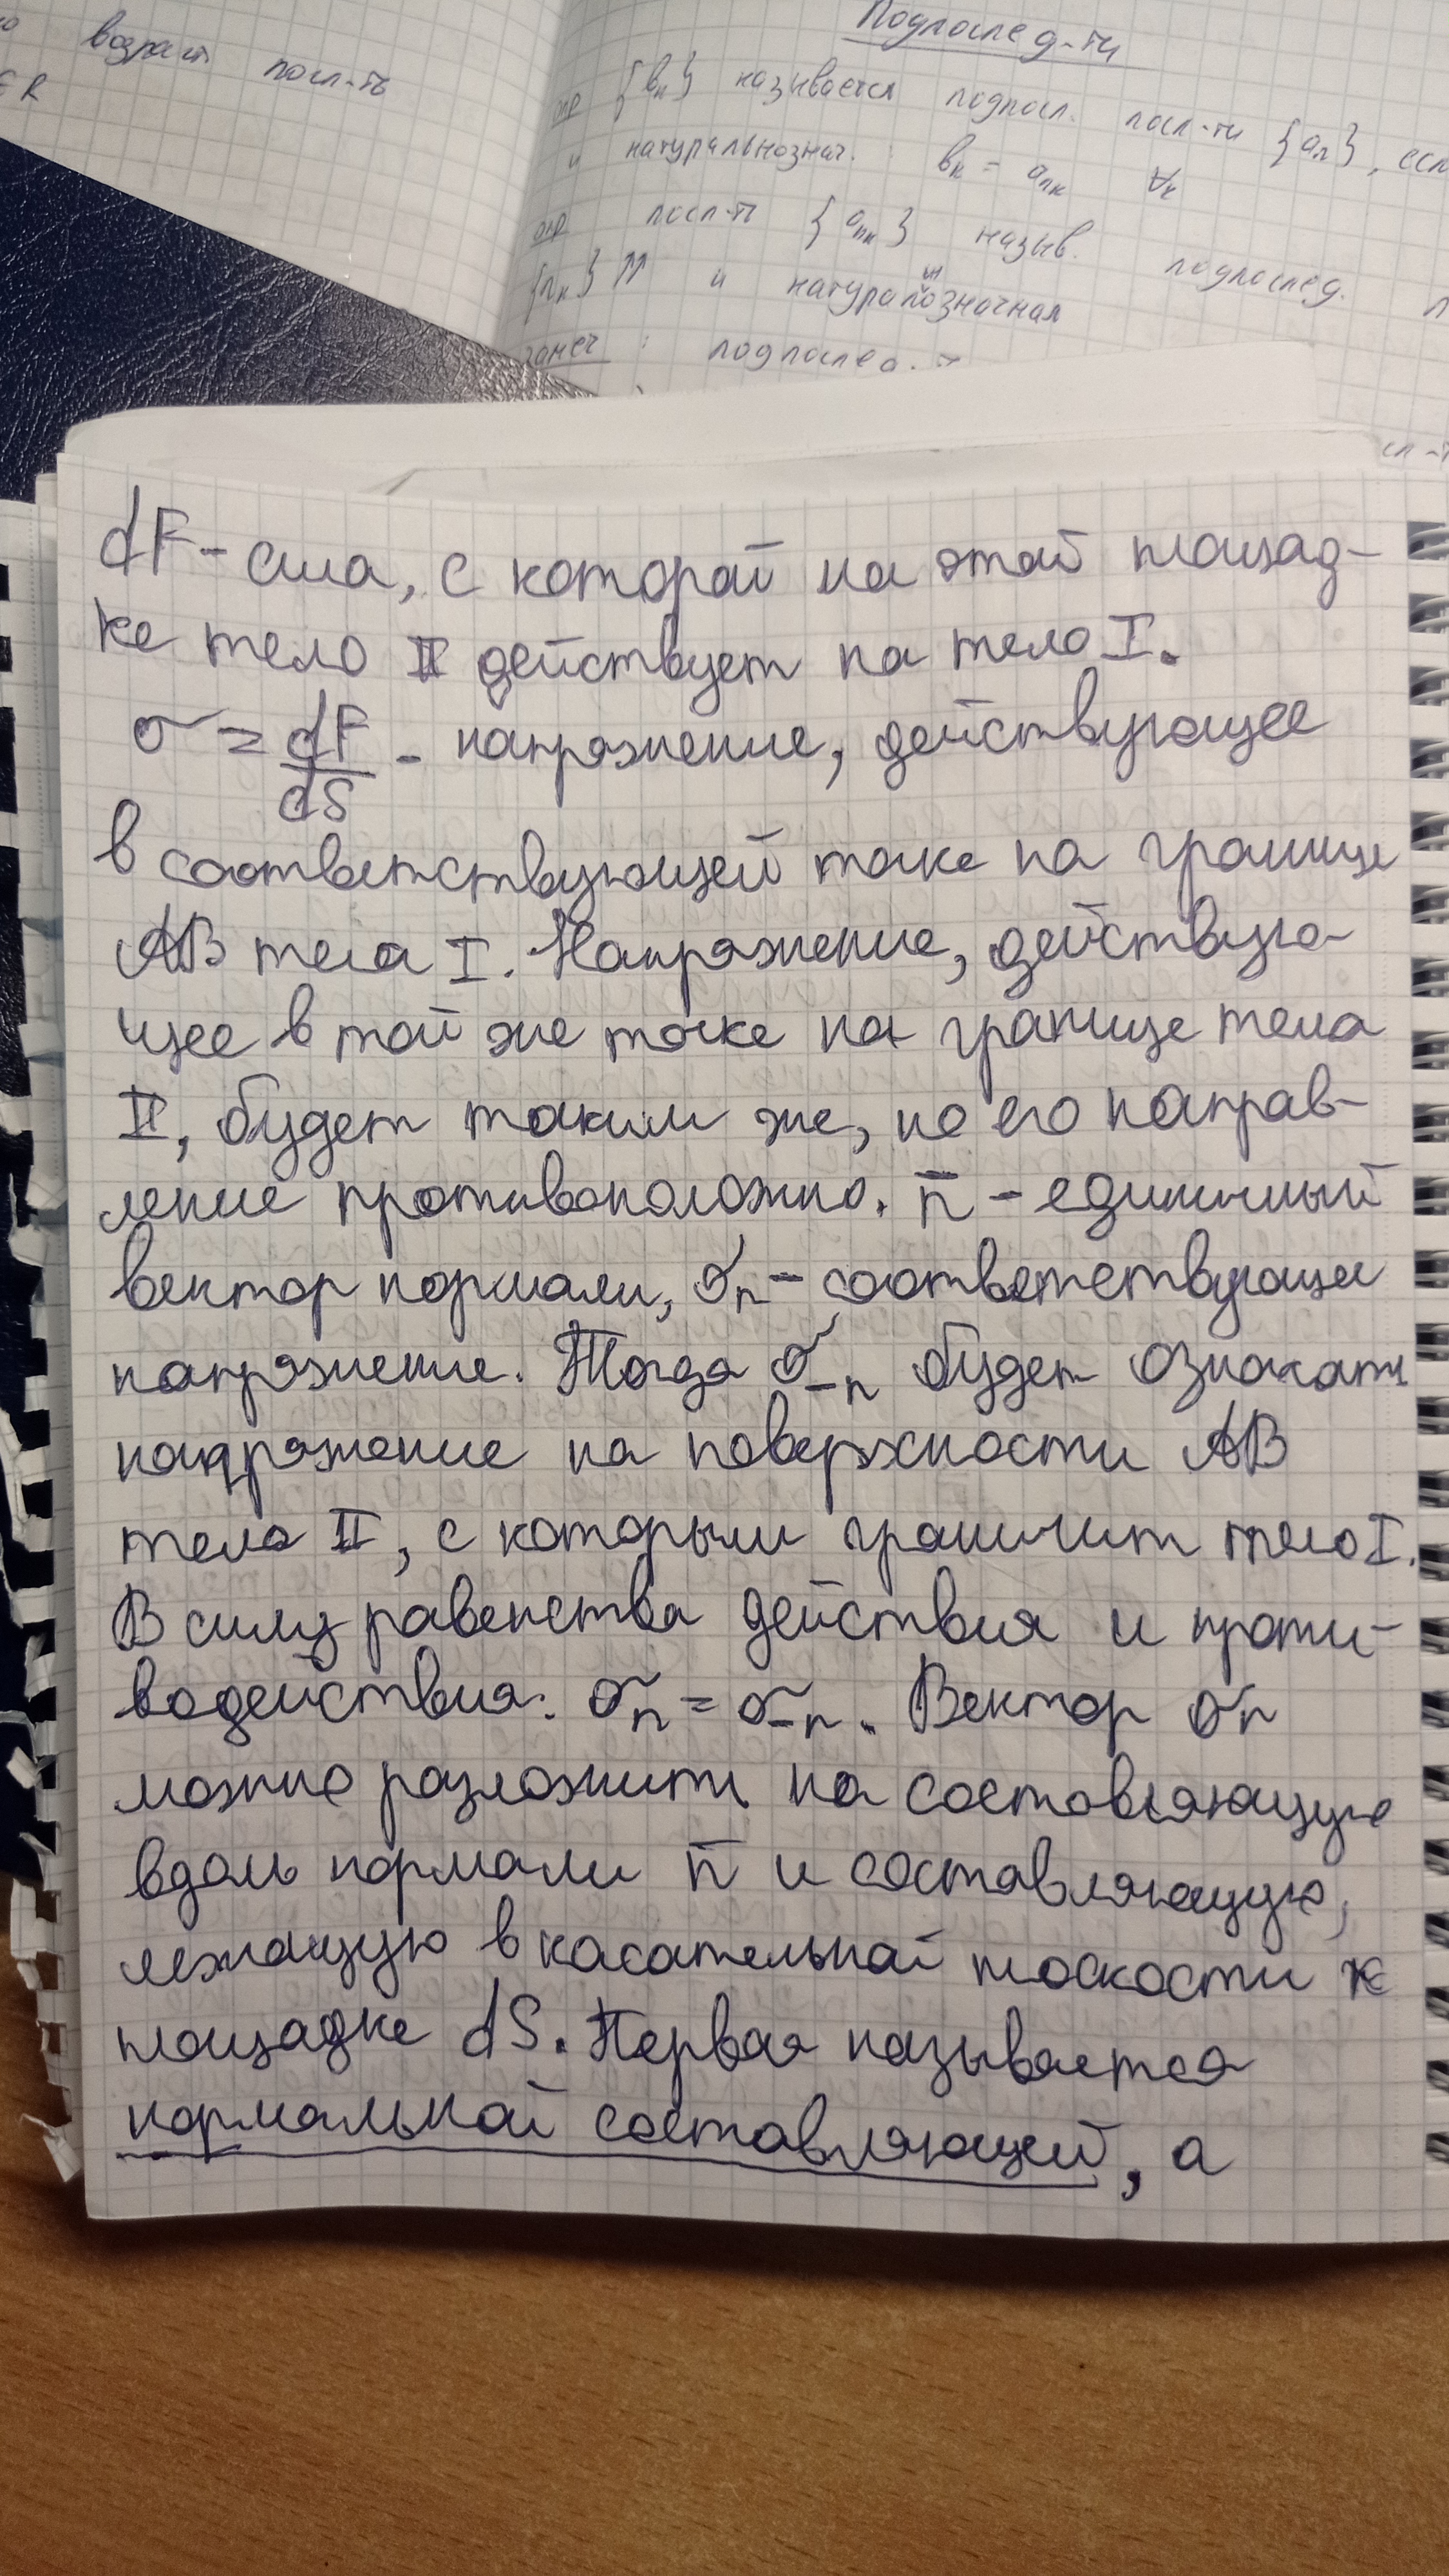 возраст посл-ть
∈ R
Подпослед-ти
опр {bₖ} называется подпосл. посл-ти {aₙ}, есл
и натуральнознач. : bₖ = aₙₖ ∀k
опр посл-ть {aₙₖ} назыв. подпослед.
{nₖ} ⇈ и натуральнозначная
замеч : подпослед.
dF - сила, с которой на этой площад-
ке тело II действует на тело I.
σ = dF/dS - напряжение, действующее
в соответствующей точке на границе
AB тела I. Напряжение, действую-
щее в той же точке на границе тела
II, будет таким же, но его направ-
ление противоположно. n̄ - единичный
вектор нормали, σₙ - соответствующее
напряжение. Тогда σ₋ₙ будет означать
напряжение на поверхности AB
тела II, с которым граничит тело I.
В силу равенства действия и проти-
водействия: σₙ = σ₋ₙ. Вектор σₙ
можно разложить на составляющую
вдоль нормали n̄ и составляющую,
лежащую в касательной плоскости к
площадке dS. Первая называется
нормальной составляющей, а